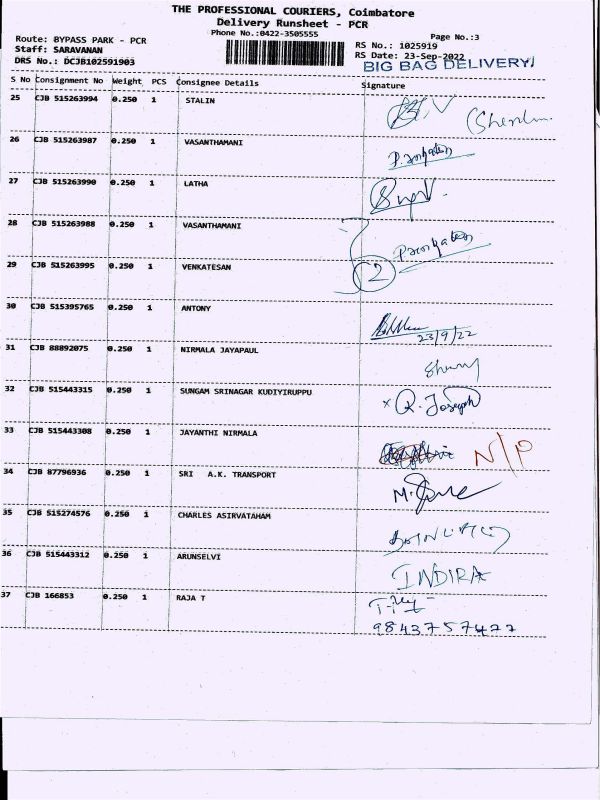 THE PROFESSIONAL COURIERS, Coimbatore
Delivery Runsheet - PCR
Phone No.:0422-3505555
Page No.:3
Route: BYPASS PARK - PCR
RS No.: 1025919
Staff: SARAVANAN
RS Date: 23-Sep-2022
DRS No.: DCJB102591903
BIG BAG DELIVERY/
S No Consignment No Weight PCS Consignee Details Signature
25 CJB 515263994 0.250 1 STALIN
26 CJB 515263987 0.250 1 VASANTHAMANI
27 CJB 515263990 0.250 1 LATHA
28 CJB 515263988 0.250 1 VASANTHAMANI
29 CJB 515263995 0.250 1 VENKATESAN 2
30 CJB 515395765 0.250 1 ANTONY
23/9/22
31 CJB 88892075 0.250 1 NIRMALA JAYAPAUL
32 CJB 515443315 0.250 1 SUNGAM SRINAGAR KUDIYIRUPPU x R. Joseph
33 CJB 515443308 0.250 1 JAYANTHI NIRMALA N/P
34 CJB 87796936 0.250 1 SRI A.K. TRANSPORT
35 CJB 515274576 0.250 1 CHARLES ASIRVATAHAM
36 CJB 515443312 0.250 1 ARUNSELVI INDIRA
37 CJB 166853 0.250 1 RAJA T
9843757477